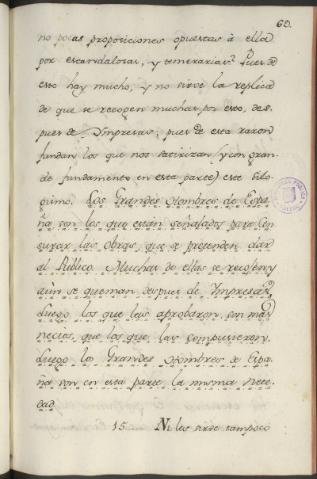 60.
no pocas proposiciones opuestas à ella
por escandalosas, y temerarias? Pues de
esto hay mucho, y no sirve la replica
de que se recogen muchas por esto, des-
pues de Impresas; pues de esta razon
fundan los que nos satirizan (y con gran-
de fundamento en esta parte) este Silo-
gismo. Los Grandes Hombres de Espa-
ña son los que están señalados para Cen-
surar las obras, que se pretenden dar
al Publico. Muchas de ellas se recojen, y
aùn se queman despues de Impresas:
Luego los que las aprobaron, son mas
necios, que los que las compusieron.
Luego los Grandes Hombres de Espa-
ña son en esta parte la misma Nece-
dad.
15 Ni les sirve tampoco